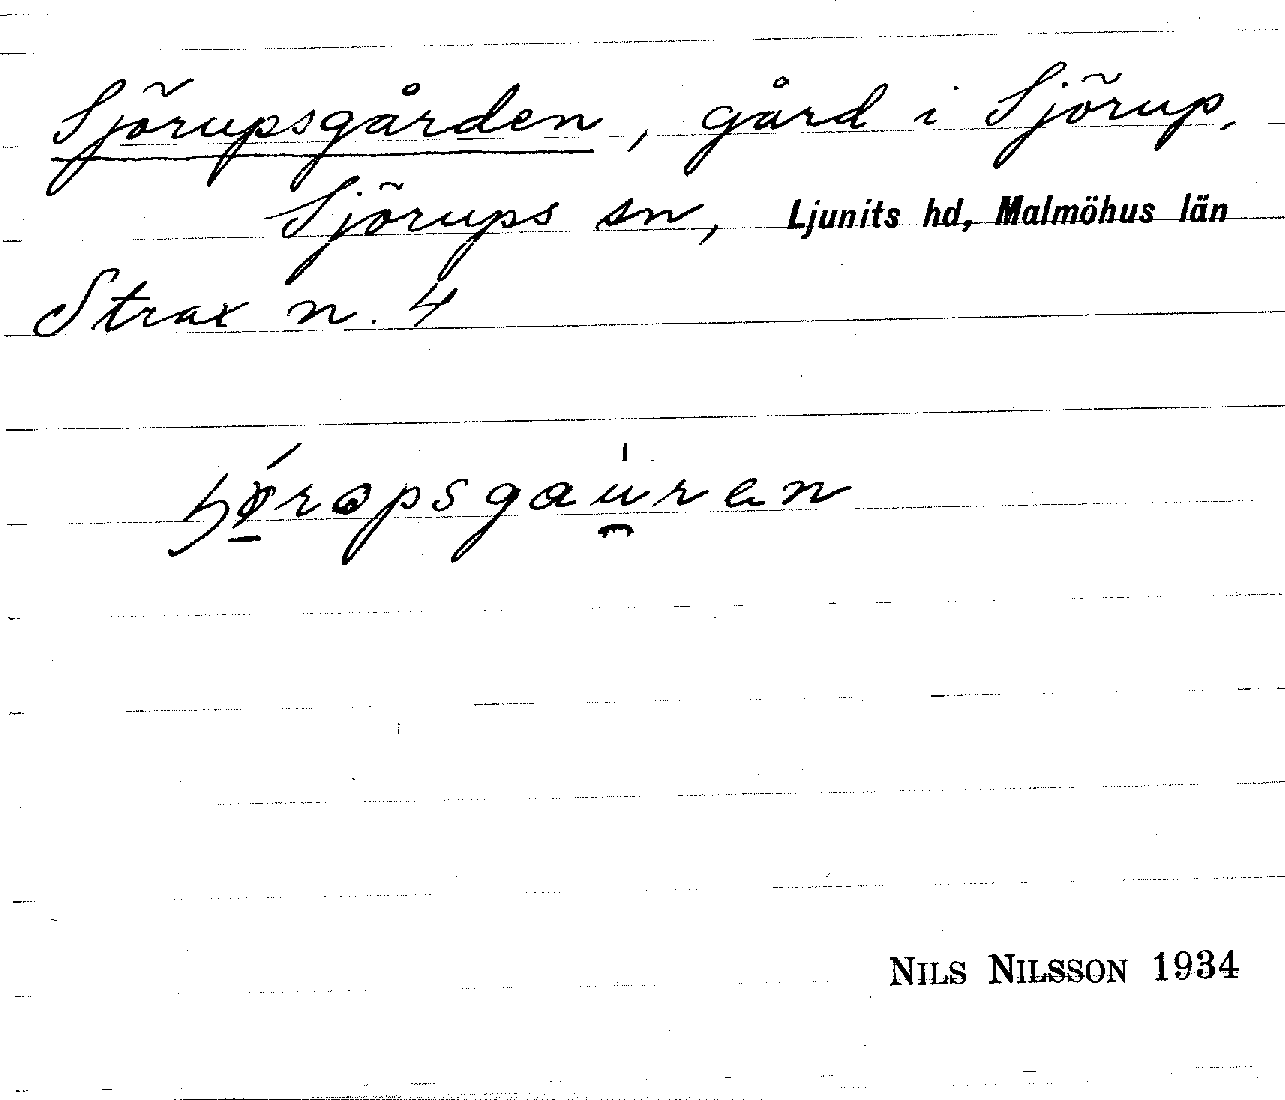 Sjörupsgården, gård i Sjörup,
Sjörups sn, Ljunits hd, Malmöhus län
Strax n. 4
NILS NILSSON 1934